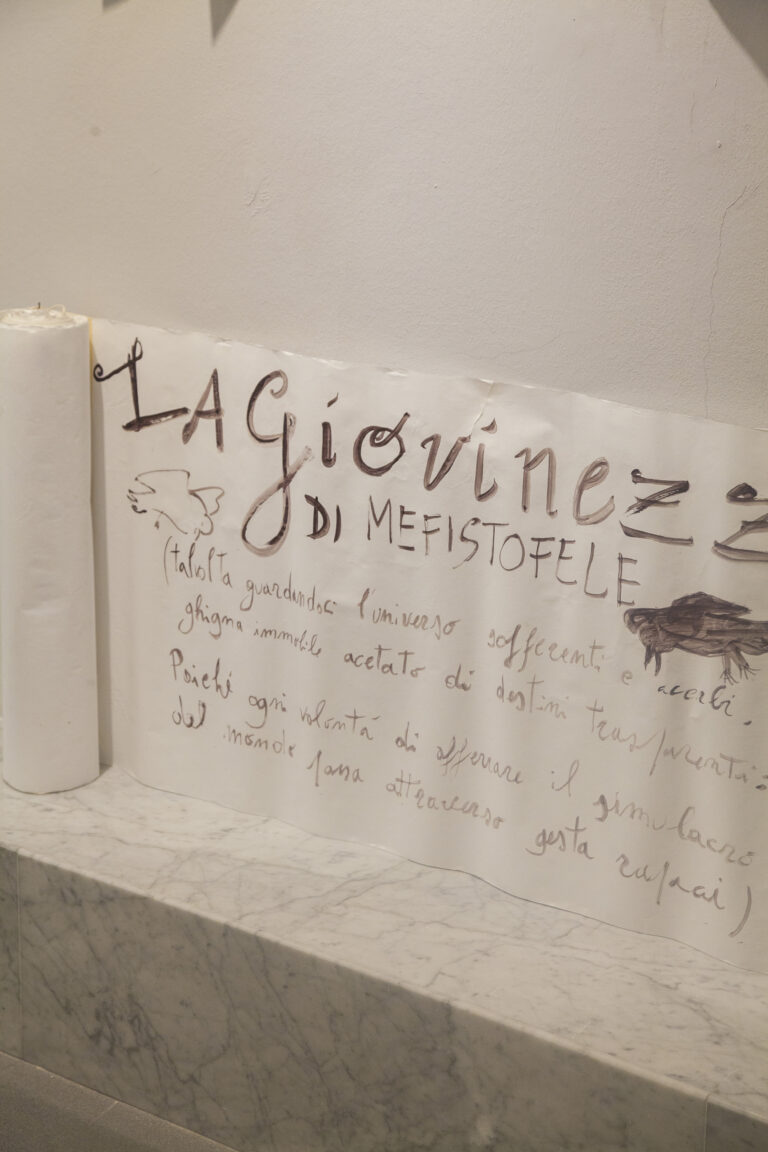 LA Giovinezz
DI MEFISTOFELE
(talvolta guardandoci l'universo sofferenti e acerbi,
ghigna immobile acetato di destini trasparenti:
Poiché ogni volontá di afferrare il simulacro
del mondo passa attraverso gesta rapaci)